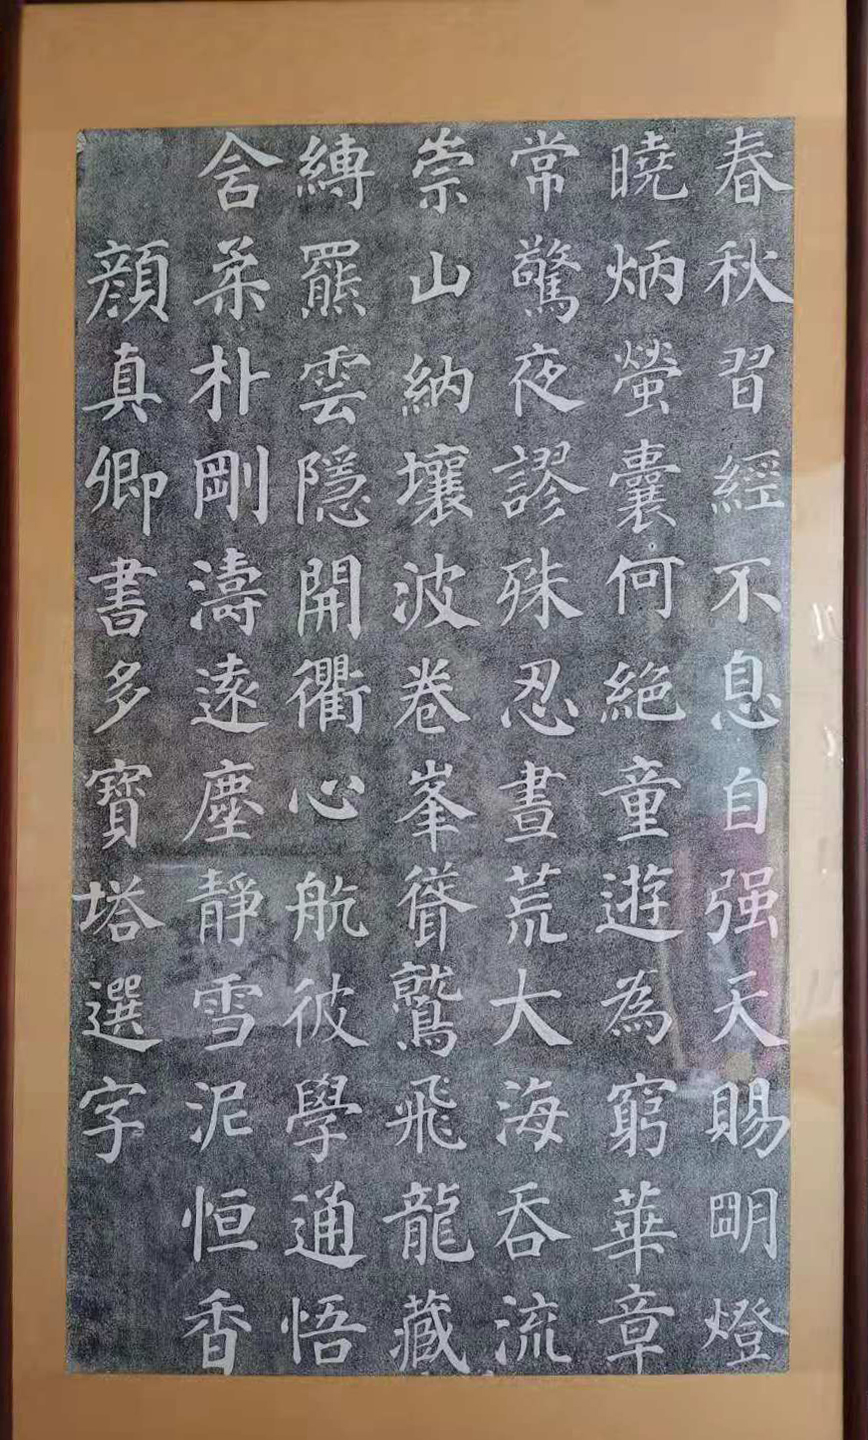 春秋習經不息自强天賜明燈
曉炳螢囊何絕童遊為窮華章
常驚夜謬殊忍晝荒大海吞流
崇山納壤波卷峯聳鷲飛龍藏
縛羆雲隱開衢心航彼學通悟
含柔朴剛濤遠塵靜雪泥恒香
顏真卿書多寶塔選字